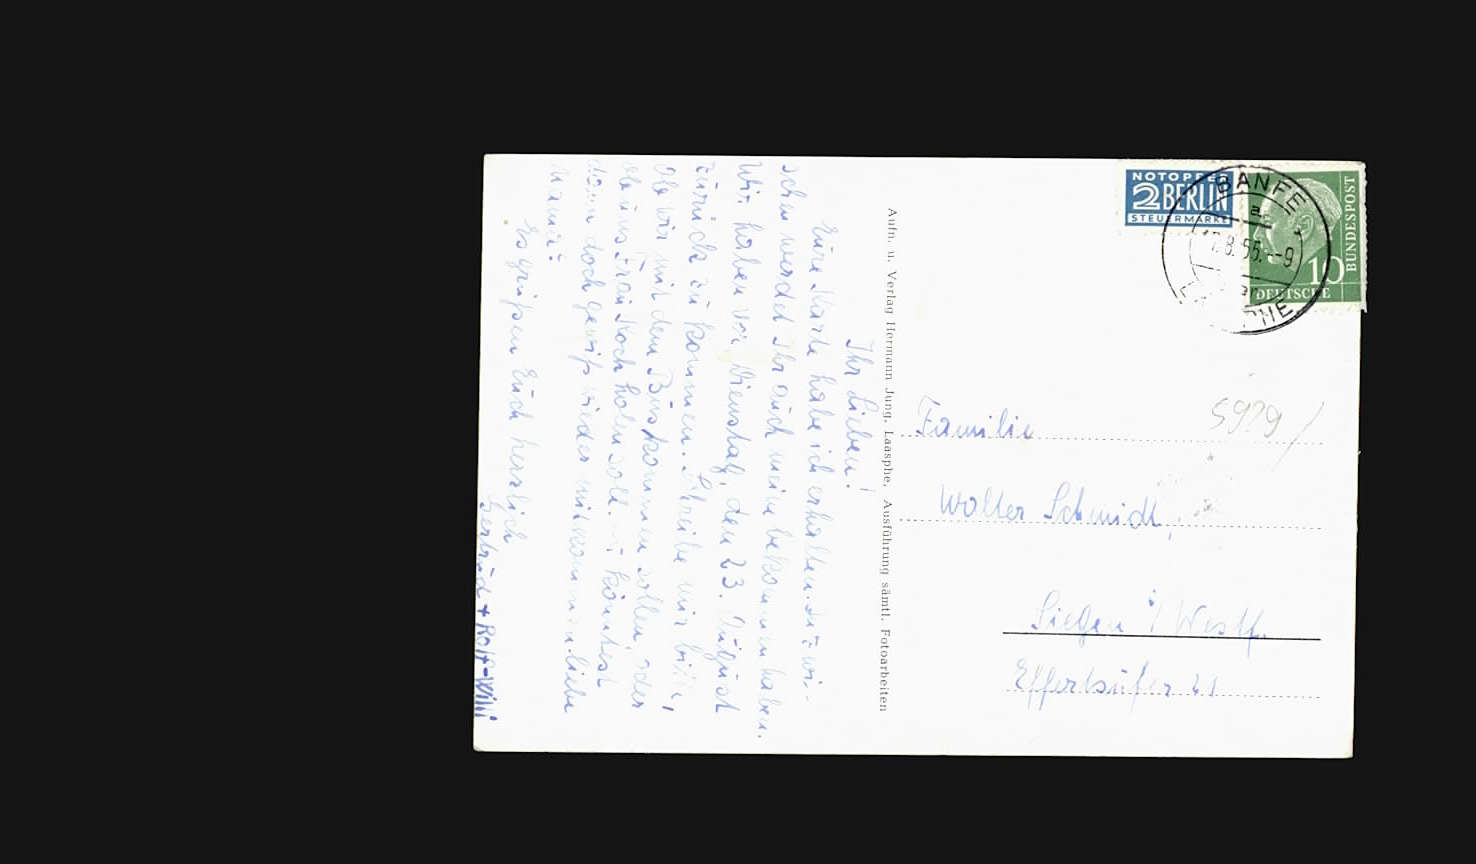 Ihr Lieben!
Eure Karte habe ich erhalten. Inzwi-
schen werdet Ihr auch meine bekommen haben.
Wir haben vor, Dienstag, den 23. August
zurück zu kommen. Schreibe mir bitte,
ob wir mit dem Bus kommen sollen, oder
ob uns Frau Koch holen soll. Könntest
dann doch gewiß wieder mitkommen liebe
Mama?
Es grüßen Euch herzlich
Gertrud + Rolf-Willi
Aufn. u. Verlag Hermann Jung, Laasphe, Ausführung sämtl. Fotoarbeiten
NOTOPFER
2 BERLIN
STEUERMARKE
BANFE
8.55.-9
DEUTSCHE
BUNDESPOST
10
5929
Familie
Walter Schmidt,
Siegen / Westf.
Effertsufer 21